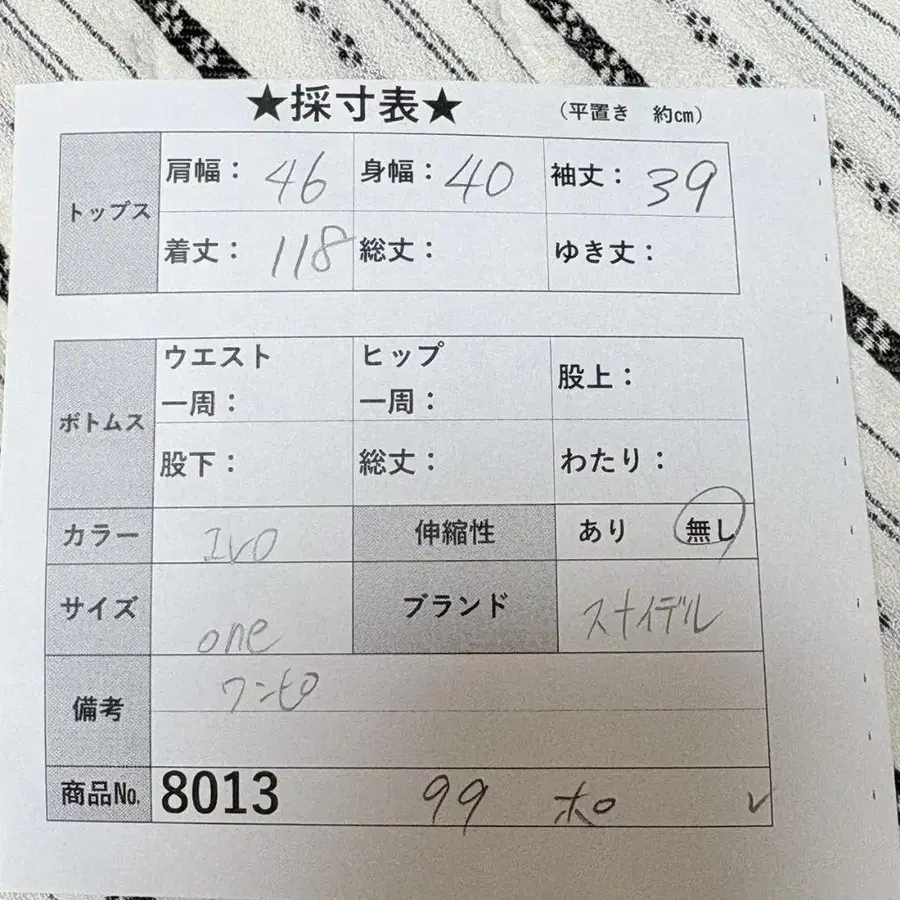 ★採寸表★ (平置き 約cm)
トップス
肩幅: 46 身幅: 40 袖丈: 39
着丈: 118 総丈: ゆき丈:
ボトムス
ウエスト一周: ヒップ一周: 股上:
股下: 総丈: わたり:
カラー IVO 伸縮性 あり 無し
サイズ one ブランド スナイデル
備考 ワンピ
商品No. 8013 99 ホロ ✓